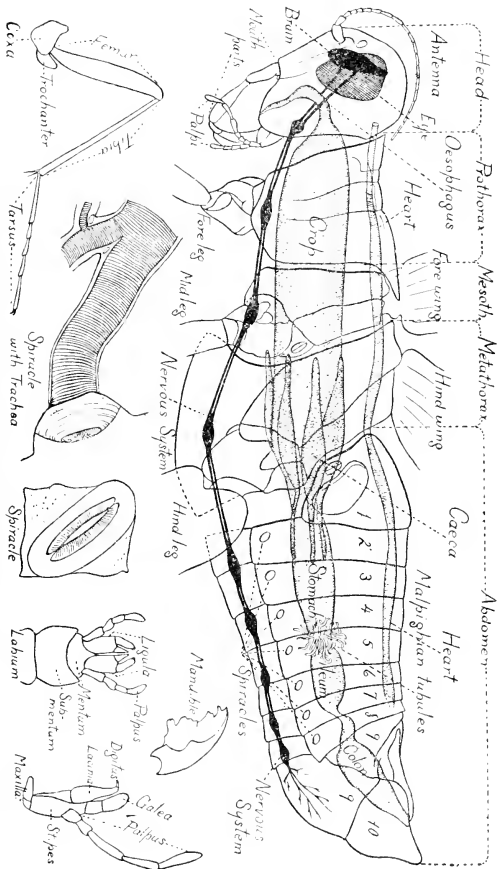 Head
Prothorax
Mesoth.
Metathorax
Abdomen
Antenna
Eye
Oesophagus
Heart
Fore wing
Hind wing
Caeca
Heart
Malpighian tubules
Brain
Mouth
parts
Palpi
Crop
Stomach
Ileum
Colon
1
2
3
4
5
6
7
8
9
9
10
Fore leg
Mid leg
Nervous System
Hind leg
Spiracles
Nervous
System
Coxa
Femur
Trochanter
Tibia
Tarsus
Spiracle
with Trachea
Spiracle
Ligula
Palpus
Mentum
Sub-
mentum
Labium
Mandible
Digitus
Lacinia
Galea
Palpus
Stipes
Maxilla